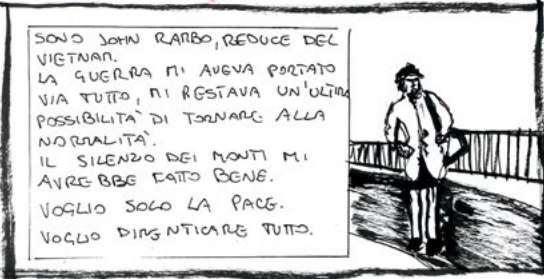 SONO JOHN RAMBO, REDUCE DEL
VIETNAM.
LA GUERRA MI AVEVA PORTATO
VIA TUTTO, MI RESTAVA UN'ULTIMA
POSSIBILITA' DI TORNARE ALLA
NORMALITA'.
IL SILENZIO DEI MONTI MI
AVREBBE FATTO BENE.
VOGLIO SOLO LA PACE.
VOGLIO DIMENTICARE TUTTO.